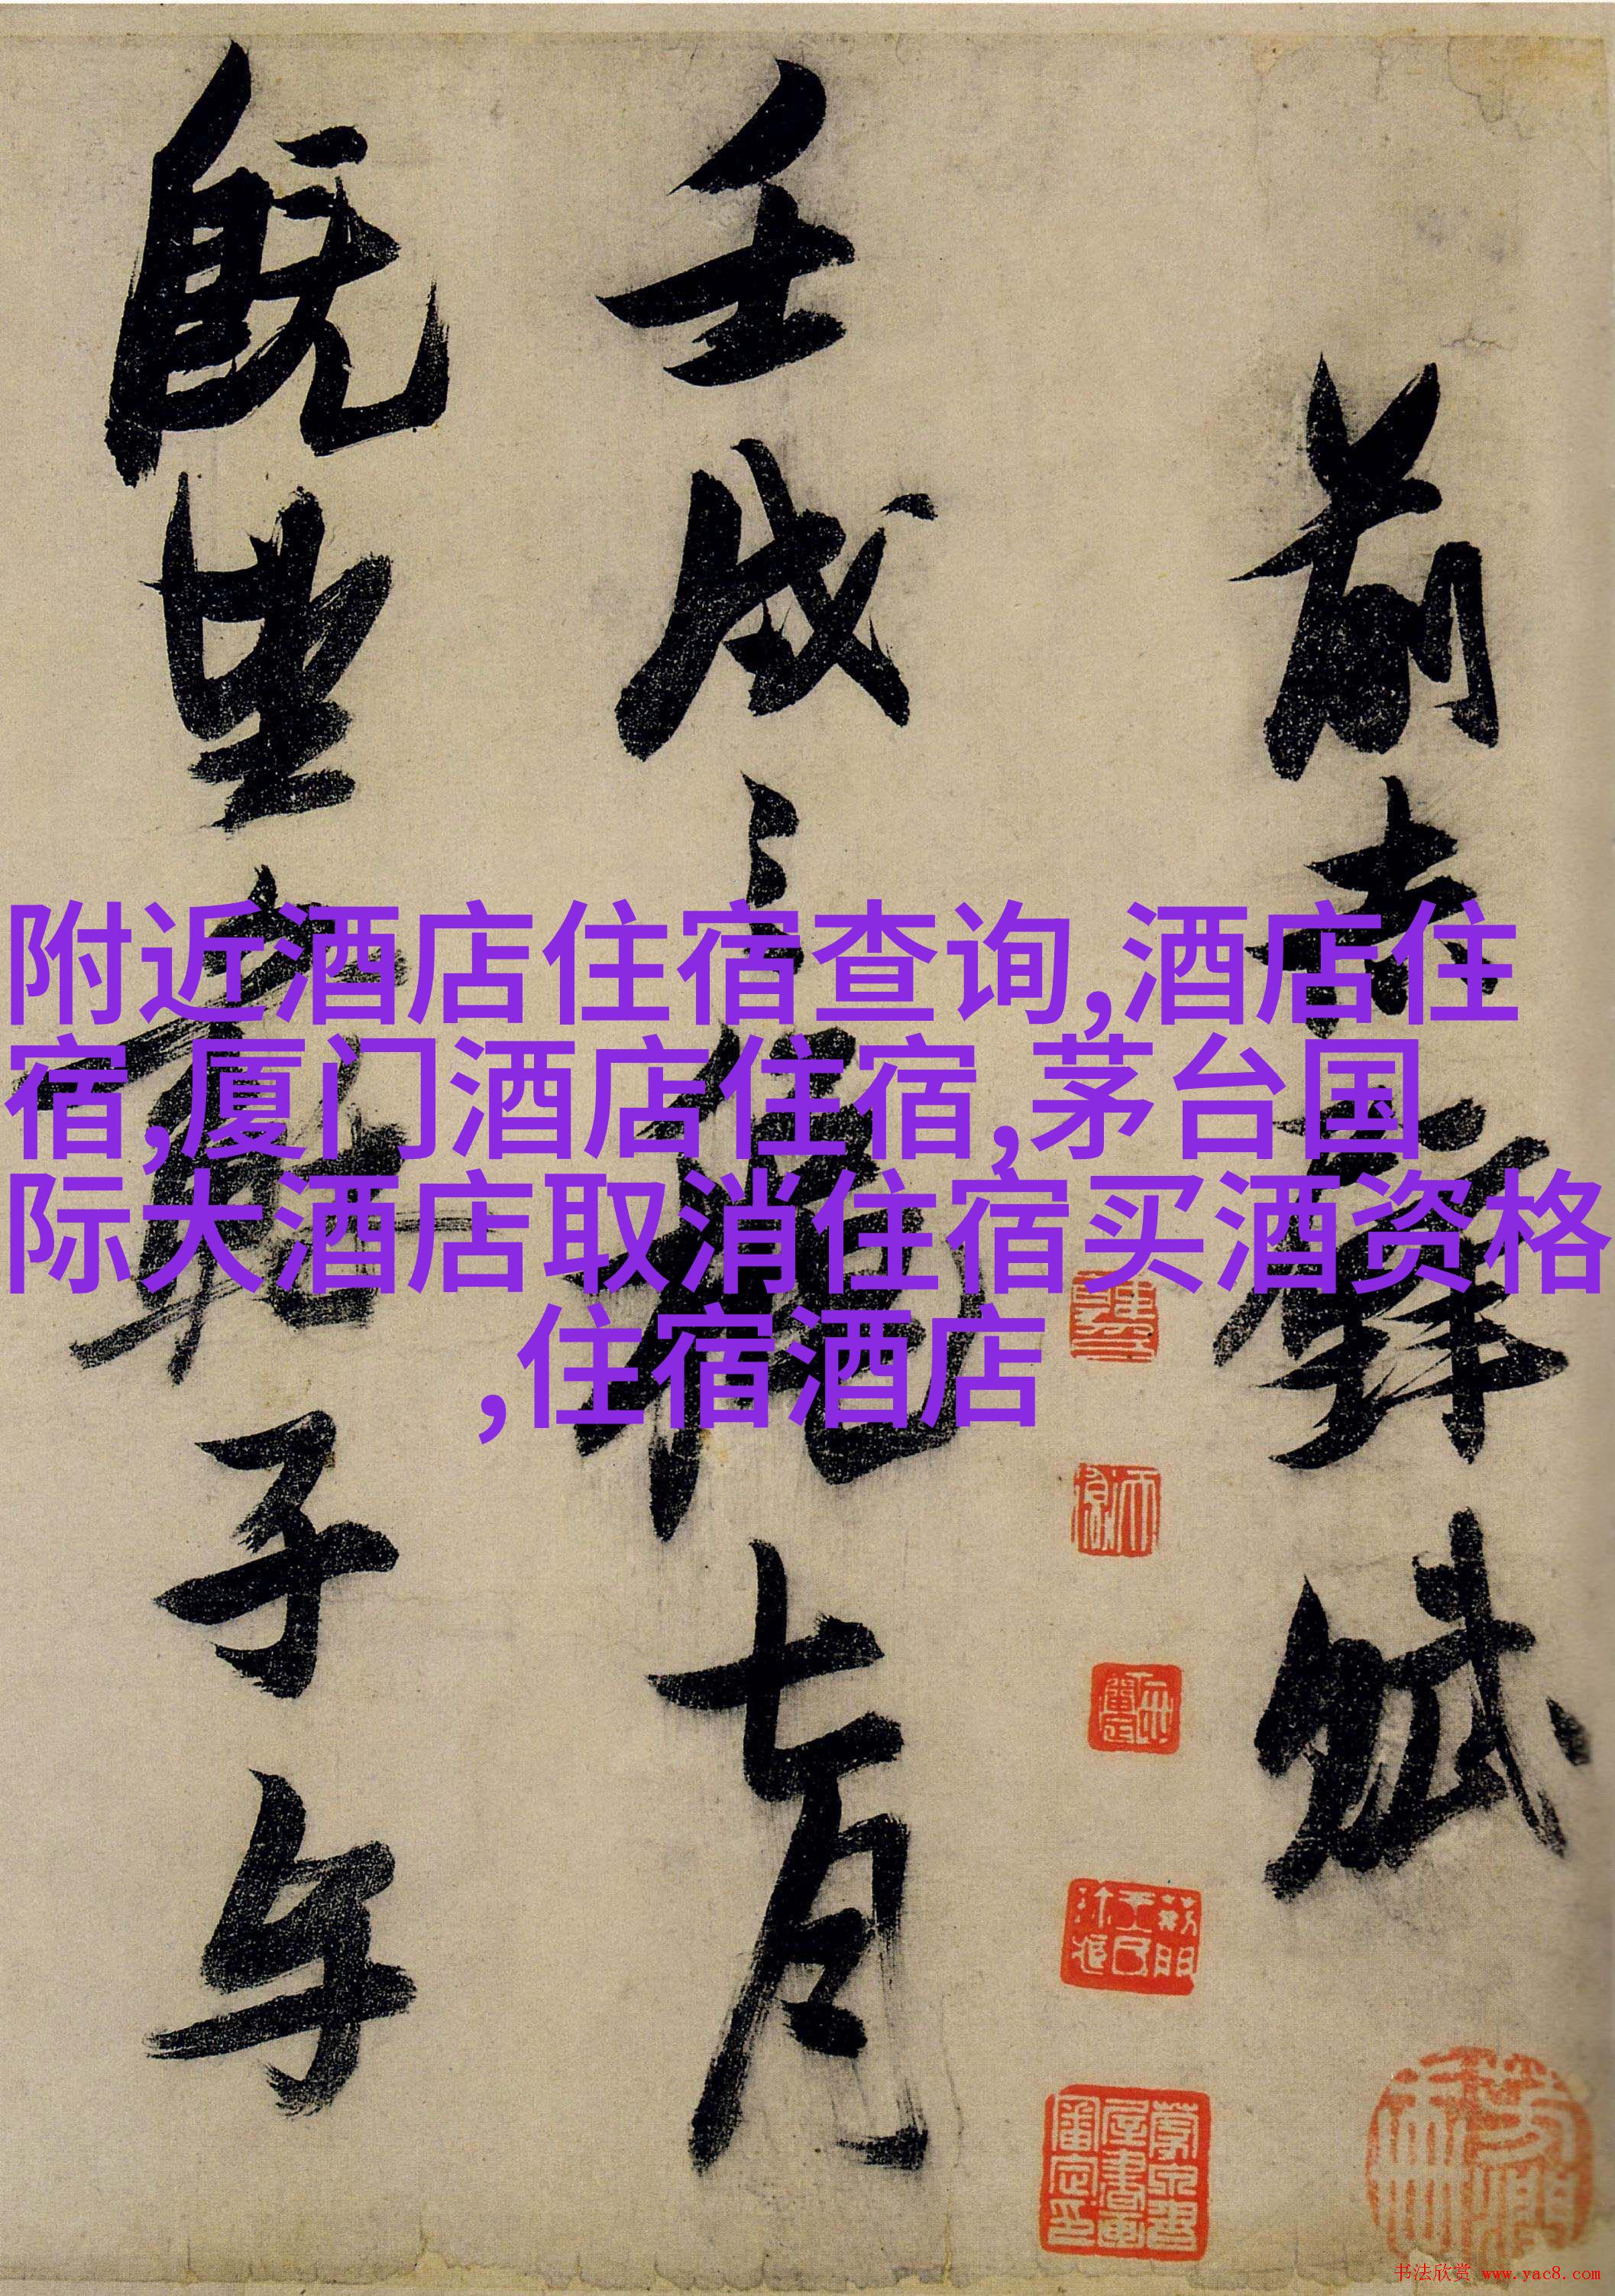 前赤壁賦
壬戌之龝七月
既望蘇子与
附近酒店住宿查询,酒店住
宿,厦门酒店住宿,茅台国
际大酒店取消住宿买酒资格
,住宿酒店
书法欣赏 www.yac8.com